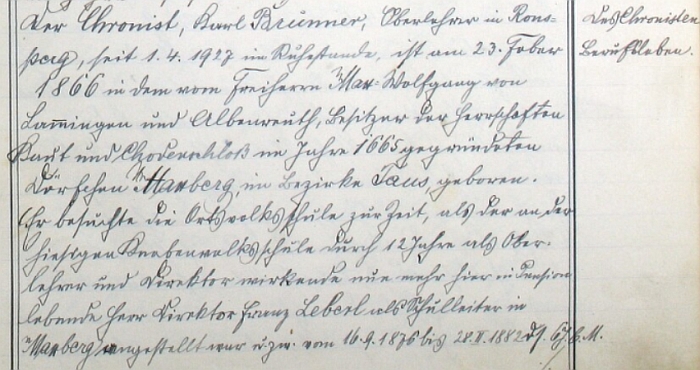 Der Chronist, Karl Brunner, Oberlehrer in Rons-
perg, seit 1.4.1927 im Ruhestande, ist am 23. Feber
1866 in dem vom Freiherrn Max Wolfgang von
Lam̅ingen und Albenreuth, Besitzer der Herrschaften
Kaut und Chodenschloß im Jahre 1665 gegründeten
Dörfchen Maxberg, im Bezirke Taus, geboren.
Er besuchte die Ortsvolksschule zur Zeit, als der an der
hiesigen Knabenvolksschule durch 12 Jahre als Ober-
lehrer und Direktor wirkende nun mehr hier in Pension
lebende Herr Direktor Franz Leberl als Schulleiter in
Maxberg angestellt war u. zw. vom 16.9.1876 bis 28.II.1882
Des Chronisten
Berufsleben.